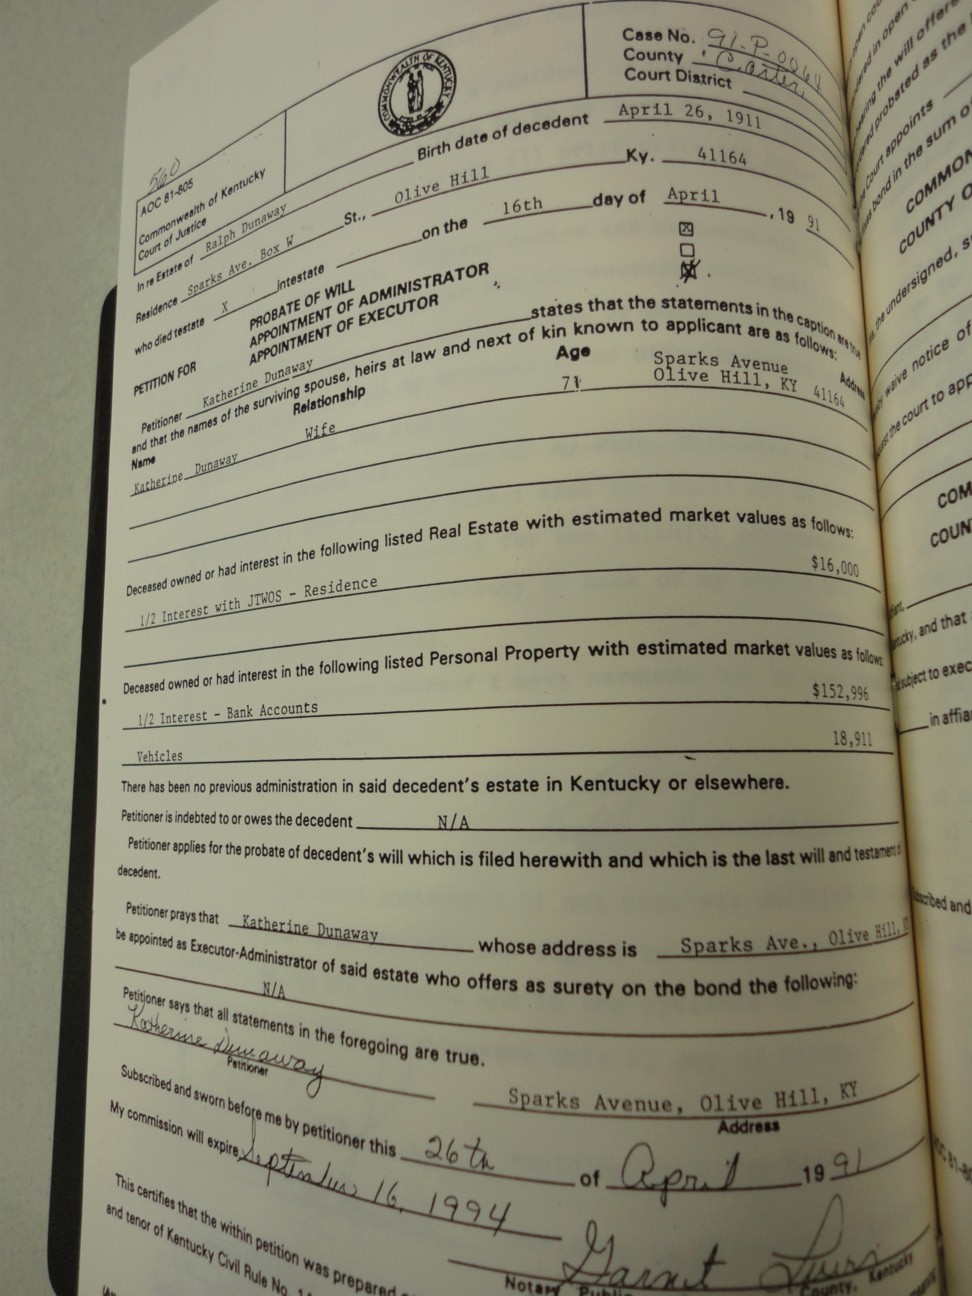 Case No. 91-P-0064
County Carter
Court District
COMMONWEALTH OF KENTUCKY
560
AOC 81-805
Commonwealth of Kentucky
Court of Justice
Birth date of decedent April 26, 1911
In re Estate of Ralph Dunaway
Residence Sparks Ave. Box W St., Olive Hill Ky. 41164
who died testate X intestate on the 16th day of April , 19 91
PETITION FOR
PROBATE OF WILL
APPOINTMENT OF ADMINISTRATOR
APPOINTMENT OF EXECUTOR
Petitioner Katherine Dunaway states that the statements in the caption are true
and that the names of the surviving spouse, heirs at law and next of kin known to applicant are as follows:
Name Relationship Age Address
Katherine Dunaway Wife 71 Sparks Avenue
Olive Hill, KY 41164
Deceased owned or had interest in the following listed Real Estate with estimated market values as follows:
1/2 Interest with JTWOS - Residence $16,000
Deceased owned or had interest in the following listed Personal Property with estimated market values as follows
1/2 Interest - Bank Accounts $152,996
Vehicles 18,911
There has been no previous administration in said decedent's estate in Kentucky or elsewhere.
Petitioner is indebted to or owes the decedent N/A
Petitioner applies for the probate of decedent's will which is filed herewith and which is the last will and testament of
decedent.
Petitioner prays that Katherine Dunaway whose address is Sparks Ave., Olive Hill,
be appointed as Executor-Administrator of said estate who offers as surety on the bond the following:
N/A
Petitioner says that all statements in the foregoing are true.
Katherine Dunaway
Petitioner
Sparks Avenue, Olive Hill, KY
Address
Subscribed and sworn before me by petitioner this 26th of April 19 91
My commission will expire September 16, 1994
Garnet
Notary Public County, Kentucky
This certifies that the within petition was prepared
and tenor of Kentucky Civil Rule No.
hearing the will offere
probated as the
Court appoints
bond in the sum of
COMMON
COUNTY O
the undersigned, s
waive notice of
the court to app
COM
COUN
and that
subject to exec
in affia